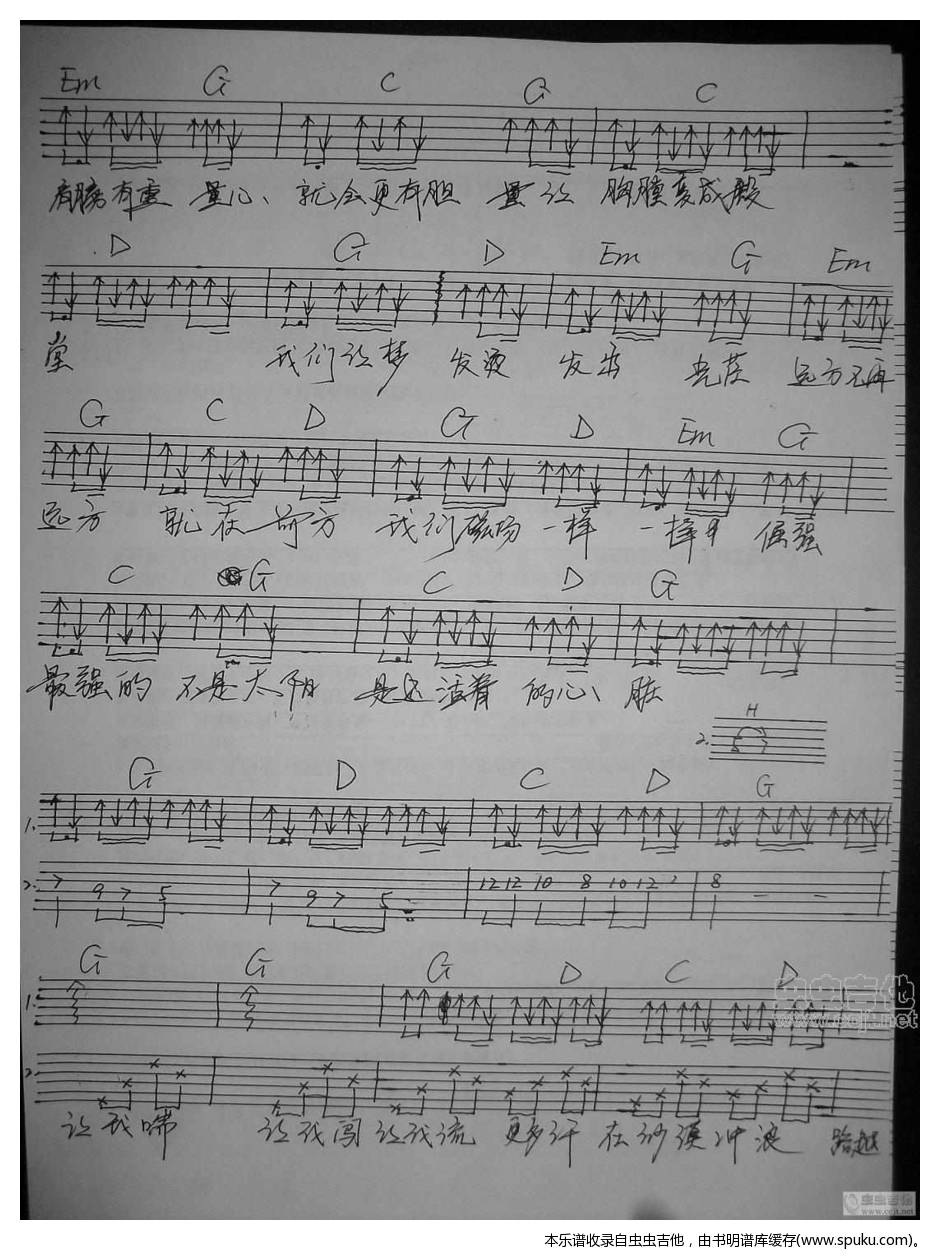 Em G C G C
肩膀有重量 就会更有胆量 让 胸膛变成殿
D G D Em G Em
堂 我们让梦 发烫 发出 光芒 远方不再
G C D G D Em G
远方 就在前方 我们磁场 一样 一样 倔强
C G C D G
最强的 不是太阳 是还活着 的心脏
H
2. 5 7
G D C D G
1.
2. 7 9 7 5 7 9 7 5 12 12 10 8 10 12 8 - -
G G G D C D
1.
2.
让我喘 让我闯 让我流 更多汗 在沙漠冲浪
虫虫吉他
www.ccjt.net
虫虫吉他
www.ccjt.net
本乐谱收录自虫虫吉他，由书明谱库缓存(www.spuku.com)。